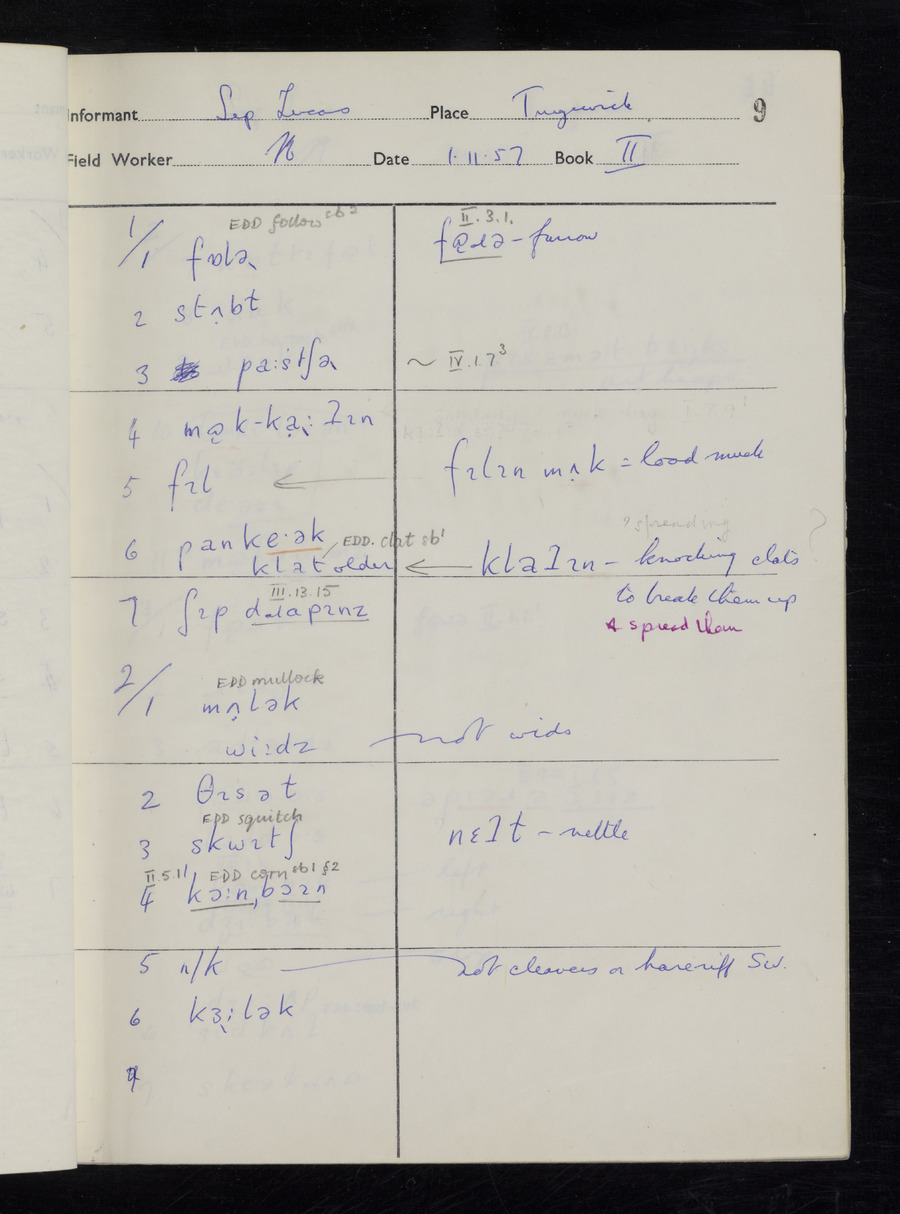 Informant Sep Lucas Place Tingewick 9
Field Worker Date 1·11·57 Book II
EDD follow sb2
II.3.1.
1/1 fɒlə˞ – furrow
2 stʌ̣bt
3 pa:stʃə˞ ~ IV.1.7³
4
5 fɪl ← fɪlɪn mʌ̣k = load muck
6 panke·ək
EDD. clat sb1
?spreading ?
klat older ← – knocking clats
to break them up
& spread them
III.13.15
7 ʃɪp
EDD mullock
2/1 mʌ̣lək
wi:dz — not wids
2 θɪsət
EDD squitch
3 skwɪtʃ nɛlt – nettle
II.5.1 EDD corn sb1 §2
4
5 n/k — not cleavers or hareriff SW.
6 kɜ˞:lək